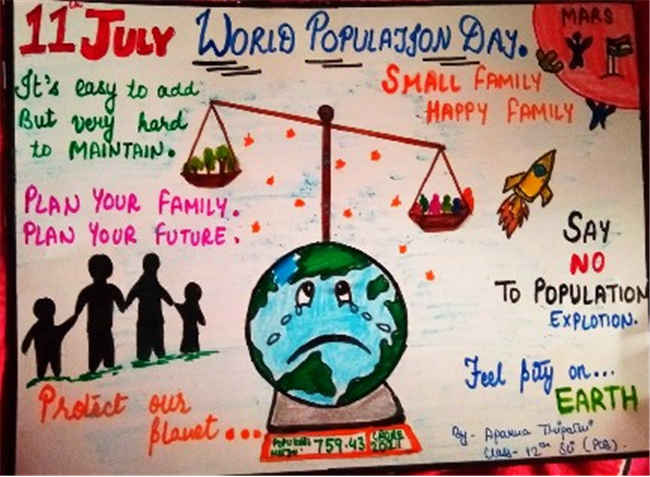 11th JULY WORLD POPULATION DAY.
MARS
It's easy to add
But very hard
to MAINTAIN.
SMALL FAMILY
HAPPY FAMILY
PLAN YOUR FAMILY.
PLAN YOUR FUTURE.
SAY
NO
TO POPULATION
EXPLOTION.
Feel pity on...
EARTH
Protect our
planet...
759.43 CRORE
2021
By- Aparna Tripathi
Class- 12th (PCB).